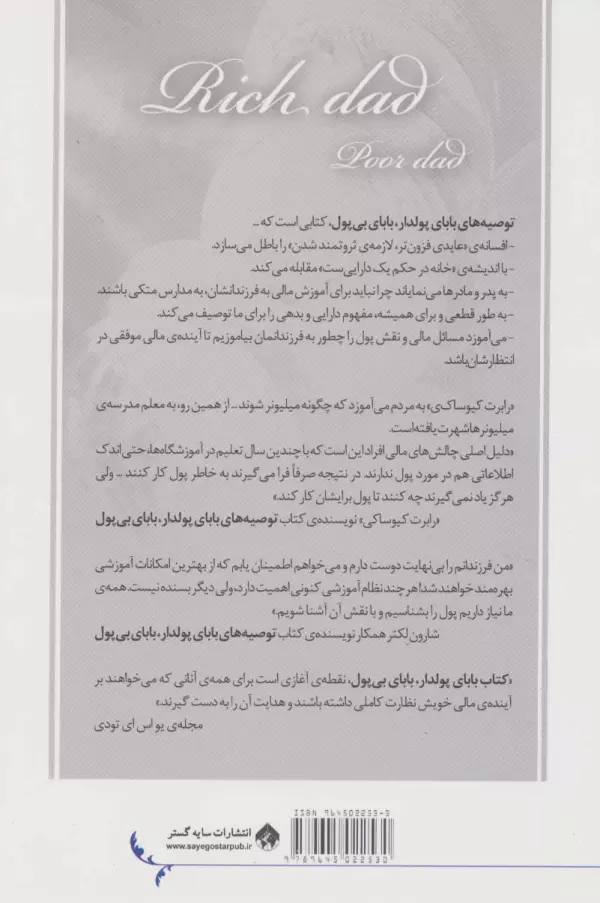 Rich dad
Poor dad
توصیه‌های بابای پولدار، بابای بی‌پول، کتابی است که ...
-افسانه‌ی «عایدی فزون‌تر، لازمه‌ی ثروتمند شدن» را باطل می‌سازد.
-با اندیشه‌ی «خانه در حکم یک دارایی‌ست» مقابله می‌کند.
-به پدر و مادرها می‌نمایاند چرا نباید برای آموزش مالی به فرزندانشان، به مدارس متکی باشند.
-به طور قطعی و برای همیشه، مفهوم دارایی و بدهی را برای ما توصیف می‌کند.
-می‌آموزد مسائل مالی و نقش پول را چطور به فرزندانمان بیاموزیم تا آینده‌ی مالی موفقی در
انتظارشان باشد.
«رابرت کیوساکی» به مردم می‌آموزد که چگونه میلیونر شوند ... از همین رو، به معلم مدرسه‌ی
میلیونرها شهرت یافته است.
«دلیل اصلی چالش‌های مالی افراد این است که با چندین سال تعلیم در آموزشگاه‌ها، حتی اندک
اطلاعاتی هم در مورد پول ندارند. در نتیجه صرفاً فرا می‌گیرند به خاطر پول کار کنند ... ولی
هرگز یاد نمی‌گیرند چه کنند تا پول برایشان کار کند.»
«رابرت کیوساکی» نویسنده‌ی کتاب توصیه‌های بابای پولدار، بابای بی‌پول
«من فرزندانم را بی‌نهایت دوست دارم و می‌خواهم اطمینان یابم که از بهترین امکانات آموزشی
بهره‌مند خواهند شد! هر چند نظام آموزشی کنونی اهمیت دارد، ولی دیگر بسنده نیست. همه‌ی
ما نیاز داریم پول را بشناسیم و با نقش آن آشنا شویم.»
شارون لکتر همکار نویسنده‌ی کتاب توصیه‌های بابای پولدار، بابای بی‌پول
«کتاب بابای پولدار، بابای بی‌پول، نقطه‌ی آغازی است برای همه‌ی آنانی که می‌خواهند بر
آینده‌ی مالی خویش نظارت کاملی داشته باشند و هدایت آن را به دست گیرند.»
مجله‌ی یو اس ای تودی
انتشارات سایه گستر
www.sayegostarpub.ir
ISBN 964502233-3
9789645022330